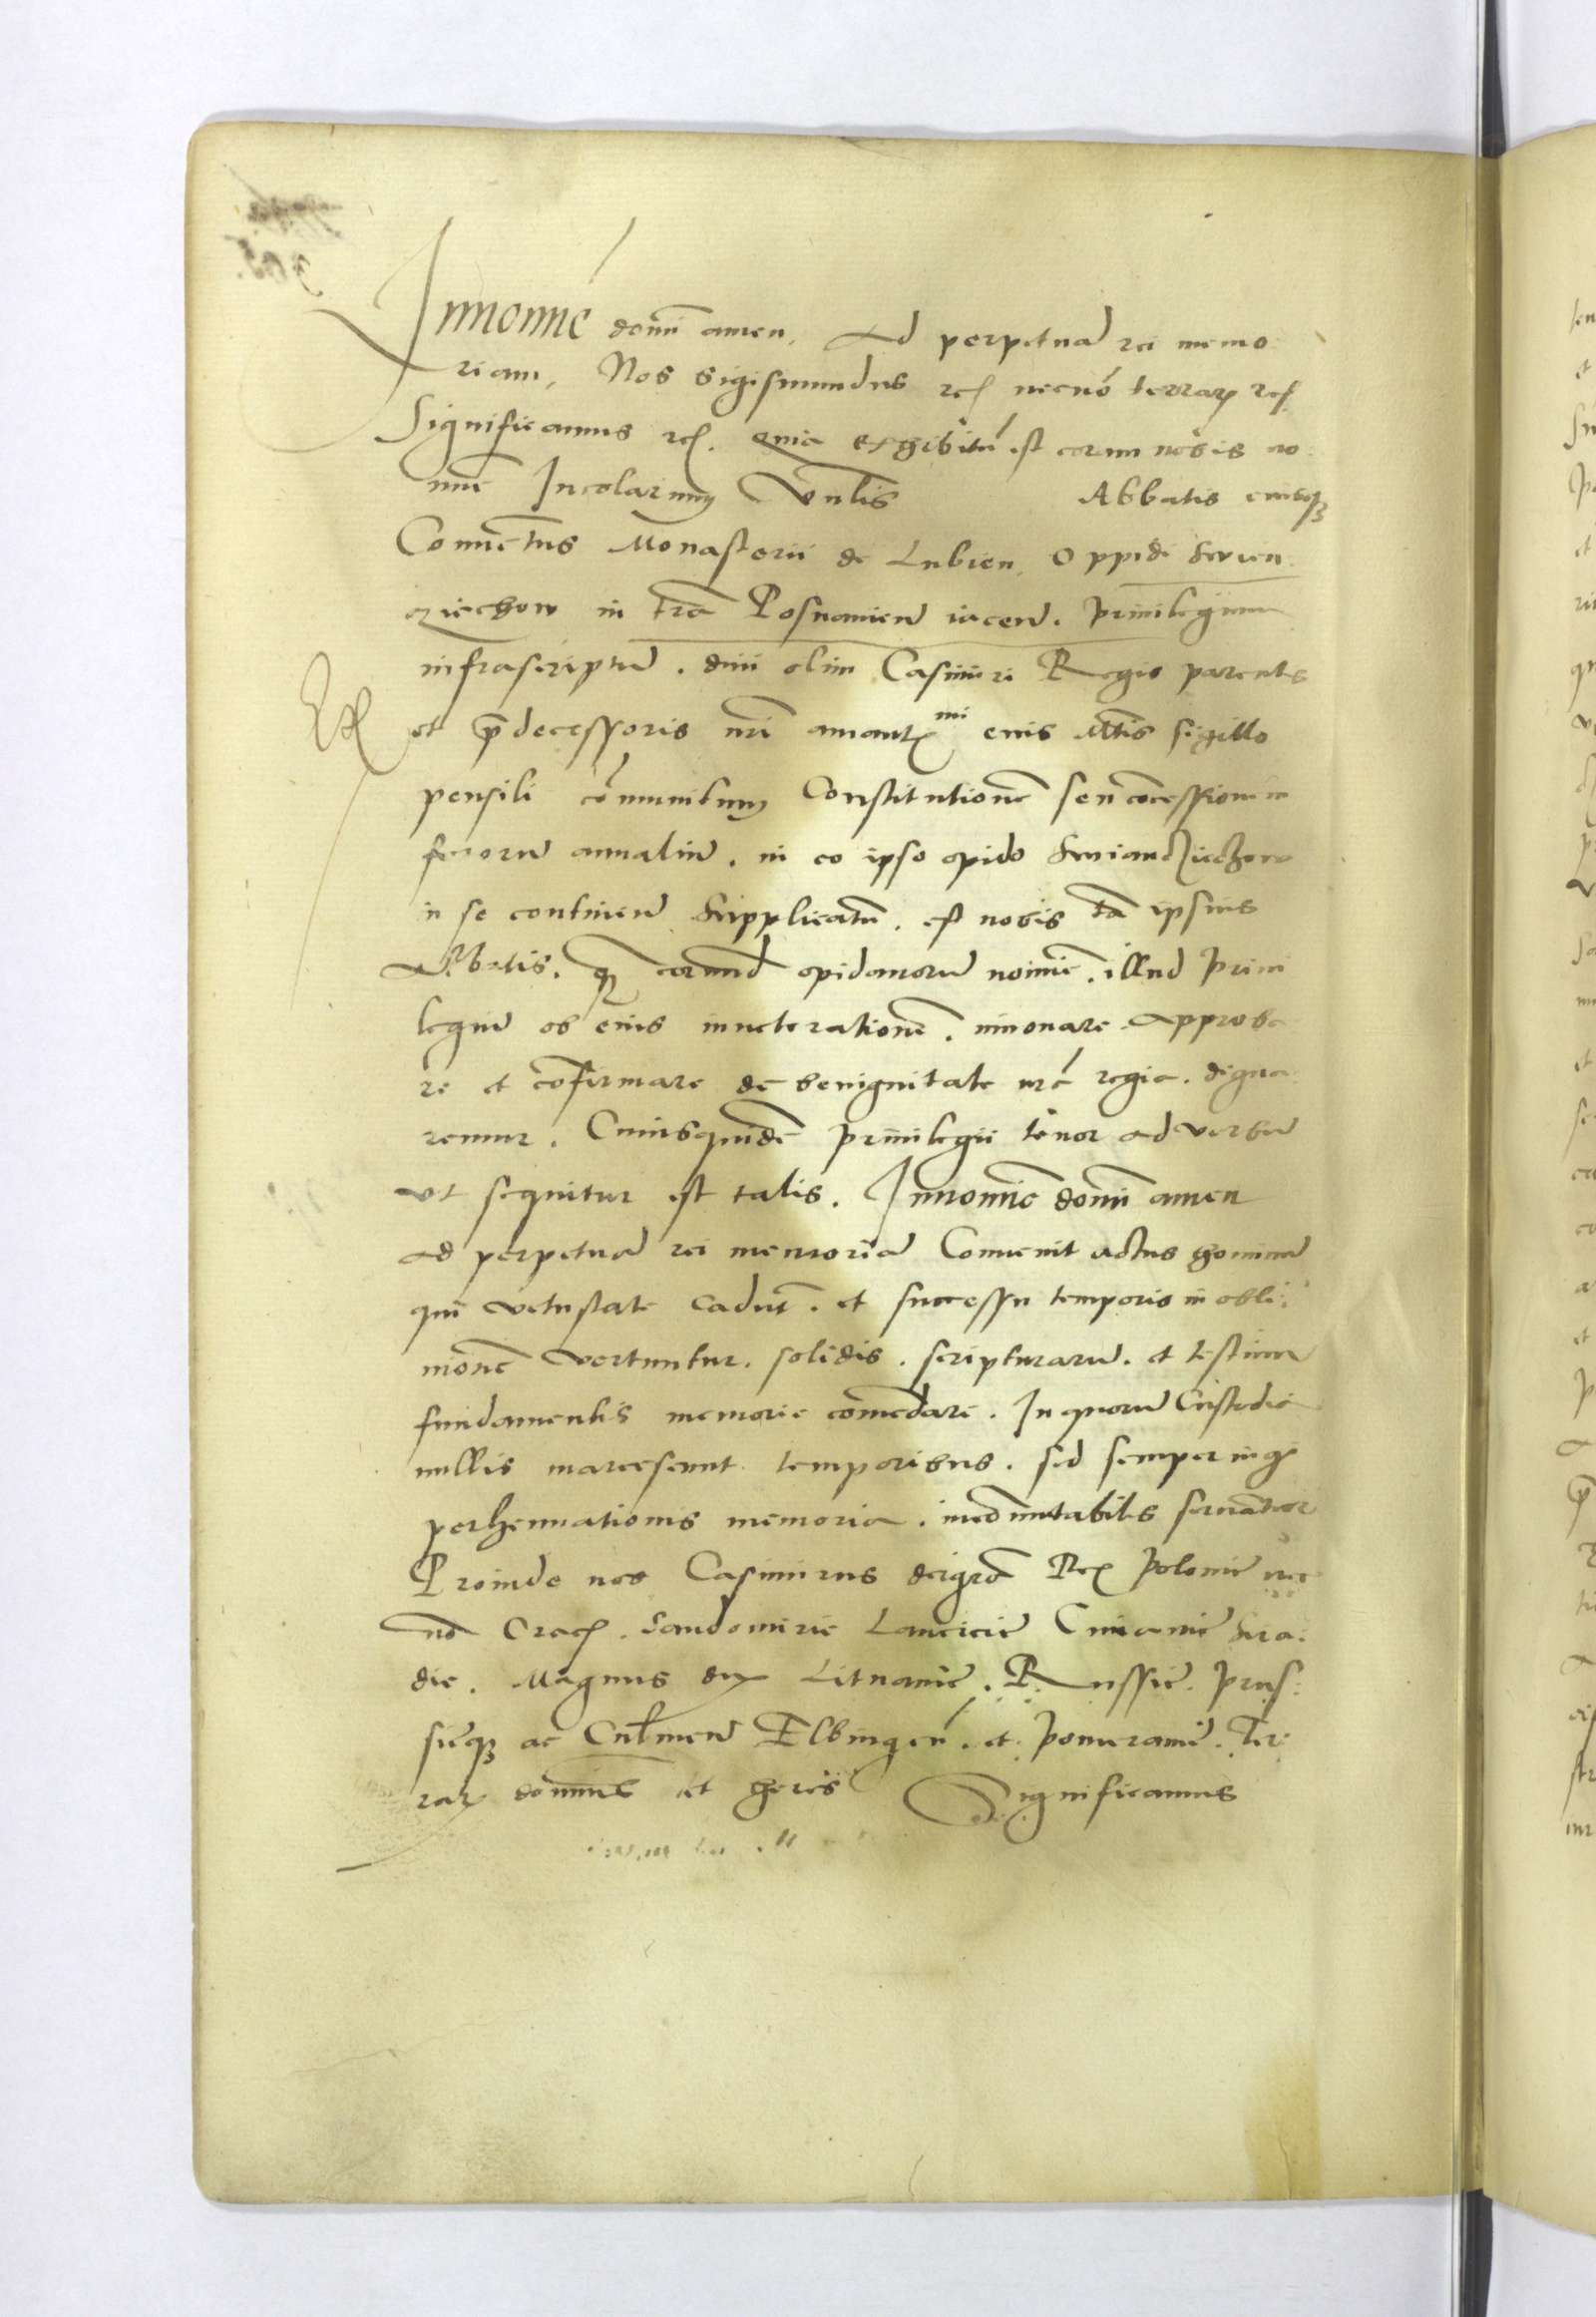 Innomīe domī amen. Ad perpetuā rei memo
riam, Nos Sigismundus rcʃ necnō terrarꝫ rcʃ
Significamus rcʃ. quia exhibitū est coram nobis no
mīe Incolarum Vn̄lis Abbatis eiusqꝫ
Conuētus Monasterii de Lubien. Oppidi Srien
cziechow in trā Posnamieñ iaceñ. priuilegium
infrascriptū. diui olim Casimiri Regis parentis
et p̄decessoris nri amantꝫmi eius Mtis sigillo
pensili cōmunitum Constitutionē seu cōcessionem
fororū annaliū. in eo ipso opido Sriandziechow
in se contineñ Supplicatū. est nobis tā ipsius
Abbatis. qꝫ eorund opidanorū noīnie. illud priui
legiū ob eius inueterationē. innouare. Approba
re et cōfirmare de benignitate nrā regia. digna
remur. Cuiusquidē priuilegii tenor ad verbū
vt sequitur est talis. Innomīe domī amen
ad perpetuā rei memoriā Conuenit actus hominū
qui vetustate cadūt. et successu temporis in obli
uionē vertuntur. solidis. scripturarū. et testium
fundamentis memorie cōmēdare. In quorū Custodia
nullis marcescunt temporibus. sed semper
perhennationis memoria. incōmutabiles seruātur
Proinde nos Casimirus deigrā Rex Polonie nec
nō Cracʃ. Sandomirie Lancicie Cuiauie Sira
die. Magnus dux Lituanie. Russie. Prus
sieqꝫ ac Culmeñ Elbingeñ. et Pomeranie. Ter
rarꝫ dominus et heres Significamus